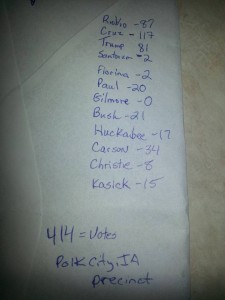 Rubio - 87
Cruz - 117
Trump 81
Santorum - 2
Fiorina - 2
Paul - 20
Gilmore - 0
Bush - 21
Huckabee - 17
Carson - 34
Christie - 8
Kasick - 15
414 = Votes
Polk City, IA
Precinct